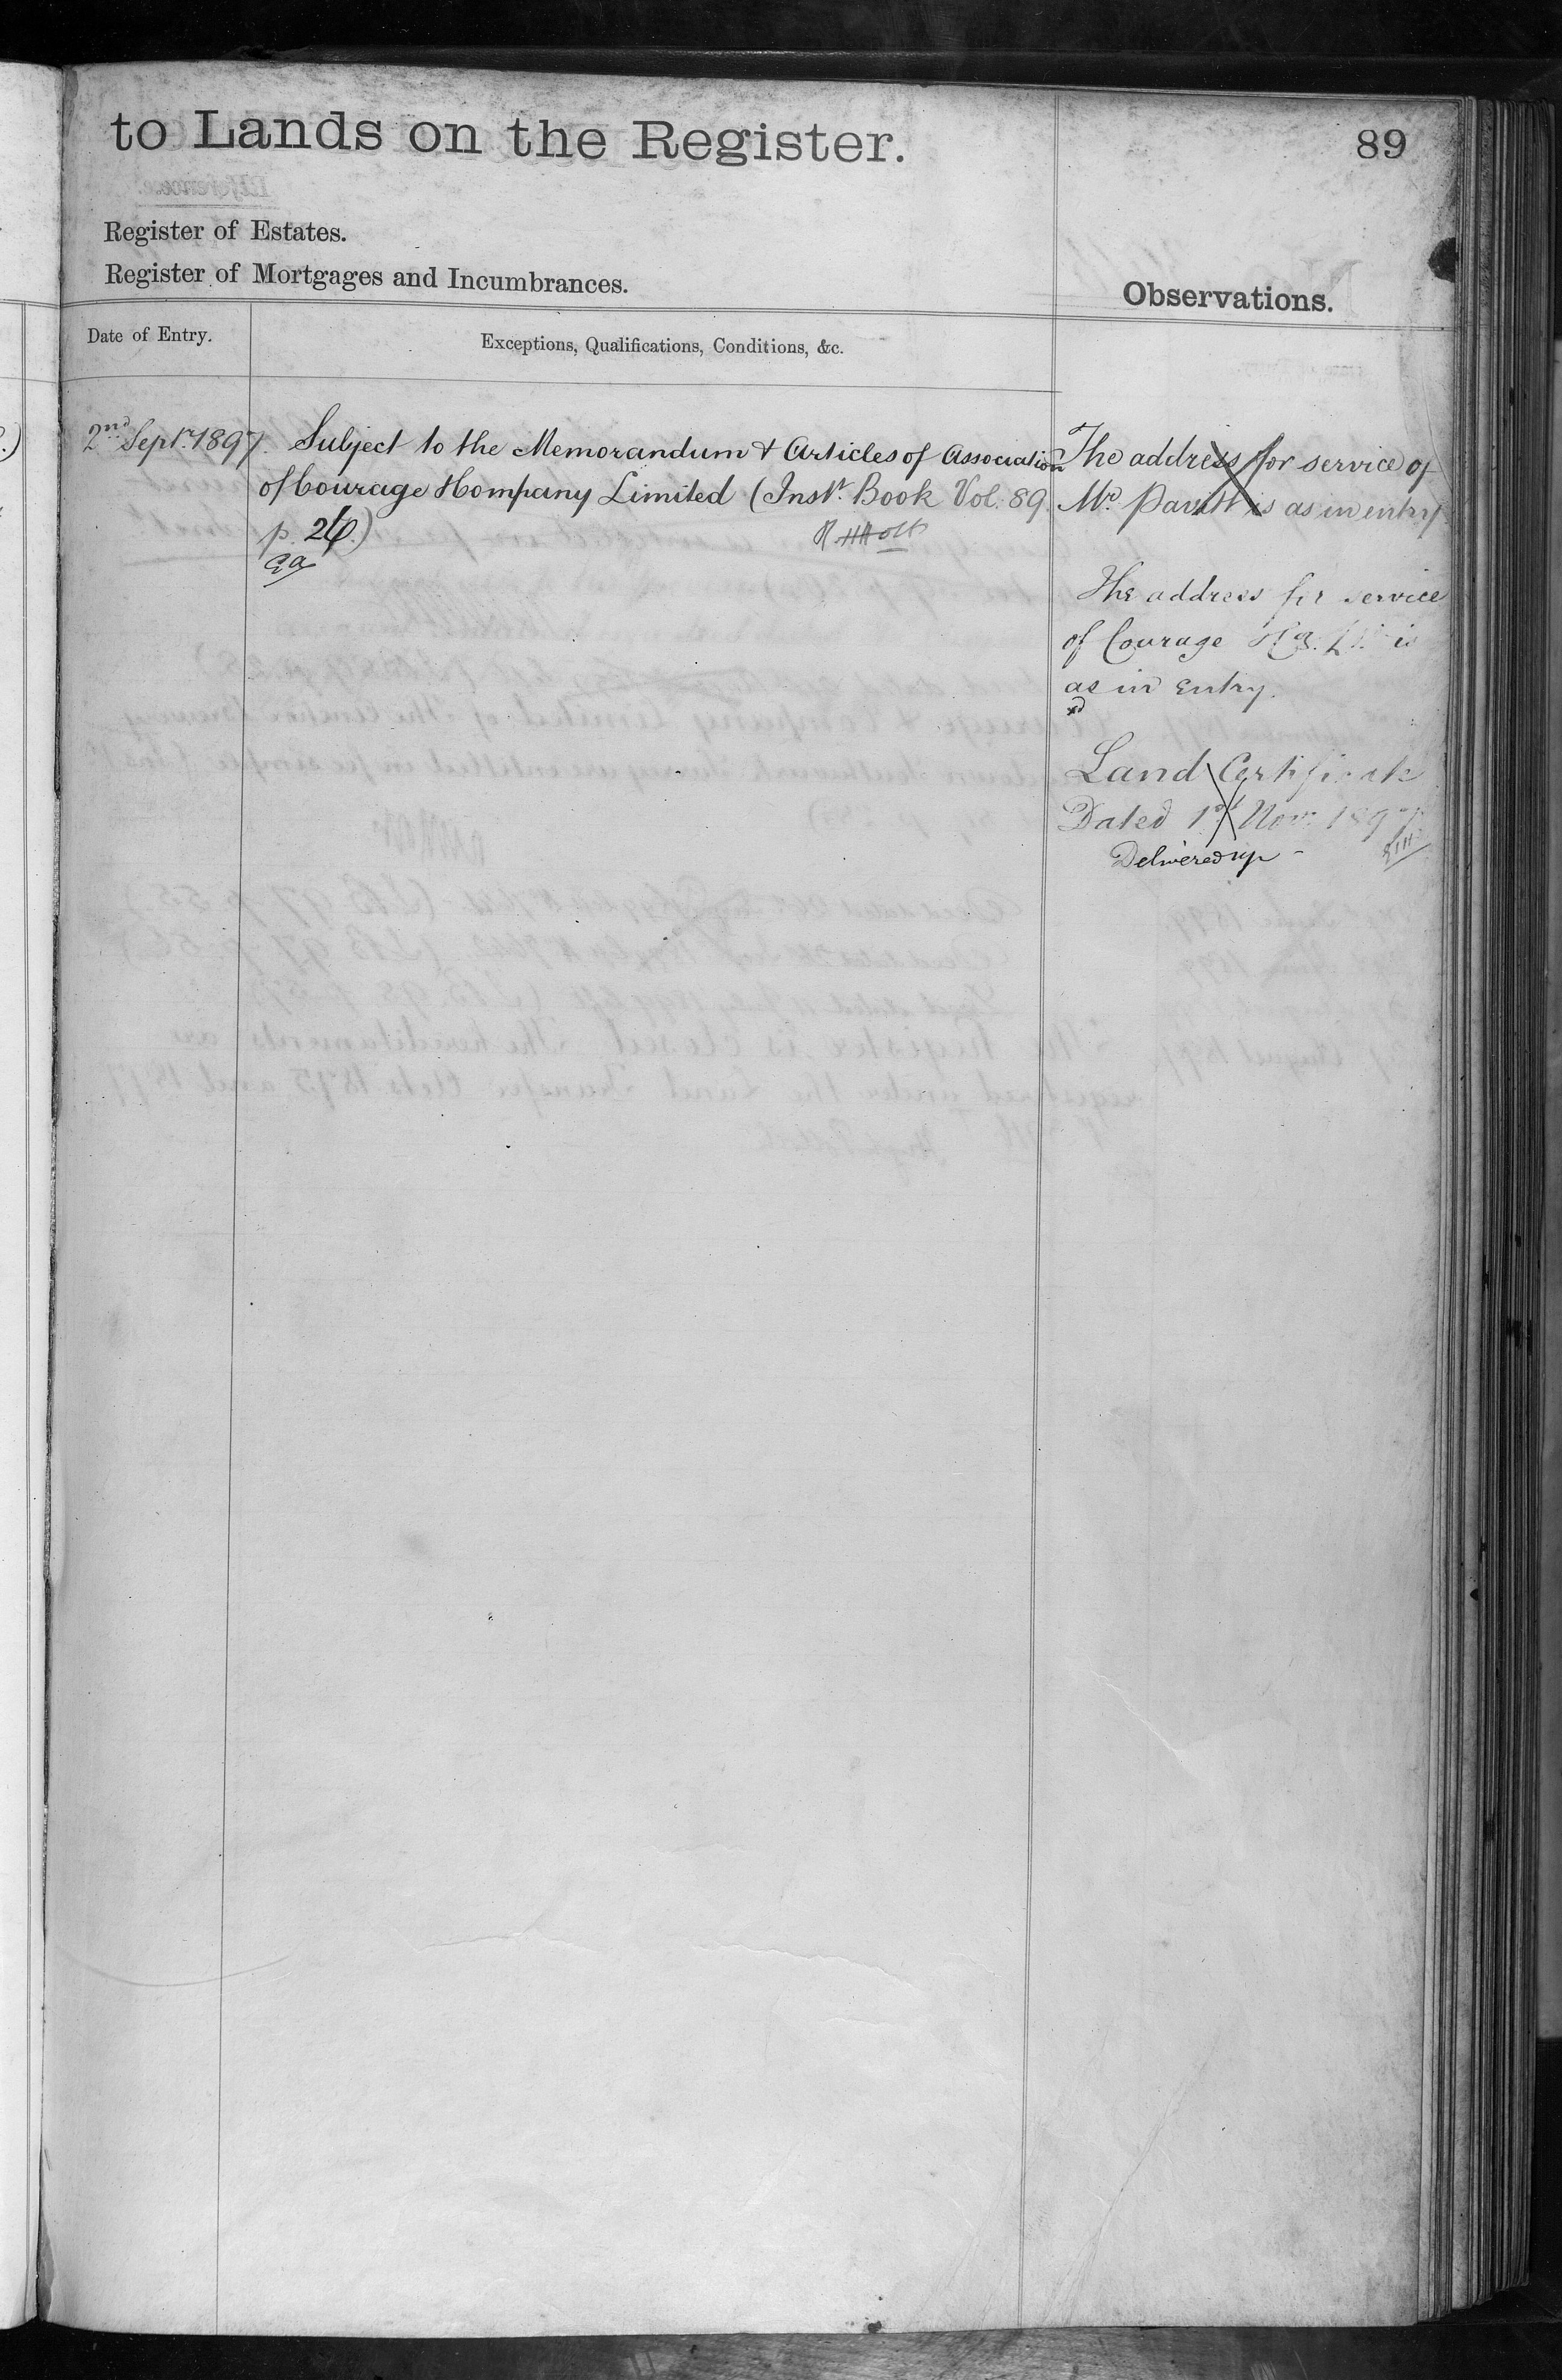 to Lands on the Register.
89
Register of Estates.
Register of Mortgages and Incumbrances.
Observations.
Date of Entry.
Exceptions, Qualifications, Conditions, &c.
2nd Sept. 1897. Subject to the Memorandum & Articles of Association
of Courage & Company Limited (Inst. Book Vol. 89
p. 26.)
The address for service of
Mr Pavitt is as in entry
The address for service
of Courage & Co. Ld. is
as in entry.
Land Certificate
Dated 1st Nov. 1897
Delivered up